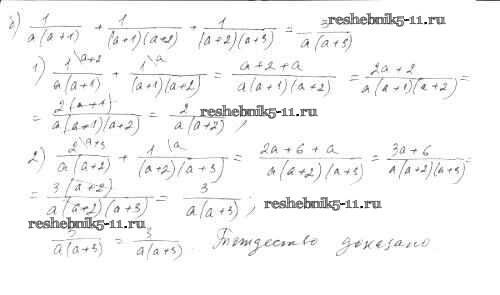 б) 1/(a(a+1)) + 1/((a+1)(a+2)) + 1/((a+2)(a+3)) = 3/(a(a+3))
reshebnik5-11.ru
1) 1\a+2/(a(a+1)) + 1\a/((a+1)(a+2)) = (a+2+a)/(a(a+1)(a+2)) = (2a+2)/(a(a+1)(a+2)) =
= 2(a+1)/(a(a+1)(a+2)) = 2/(a(a+2)) ;
reshebnik5-11.ru
2) 2\a+3/(a(a+2)) + 1\a/((a+2)(a+3)) = (2a+6+a)/(a(a+2)(a+3)) = (3a+6)/(a(a+2)(a+3)) =
= 3(a+2)/(a(a+2)(a+3)) = 3/(a(a+3)) ;
reshebnik5-11.ru
reshebnik5-11.ru
3/(a(a+3)) = 3/(a(a+3)) . Тождество доказано.